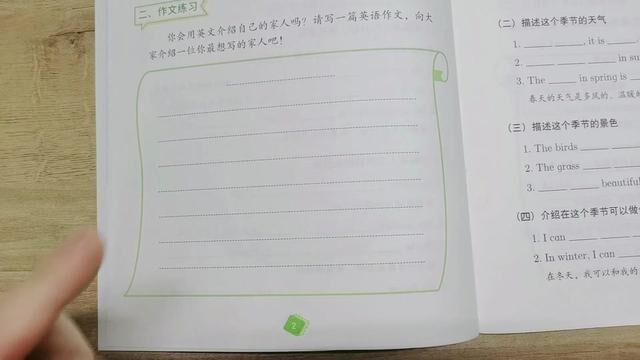 二、作文练习
你会用英文介绍自己的家人吗？请写一篇英语作文，向大
家介绍一位你最想写的家人吧！
2
（二）描述这个季节的天气
1. ______ ______, it is ______
2. ______ ______ ______ in su
3. The ______ in spring is
春天的天气是多风的、温暖
（三）描述这个季节的景色
1. The birds ______
2. The grass ______
3. ______ ______ beautiful
（四）介绍在这个季节可以做
1. I can ______
2. In winter, I can ______
在冬天，我可以和我的